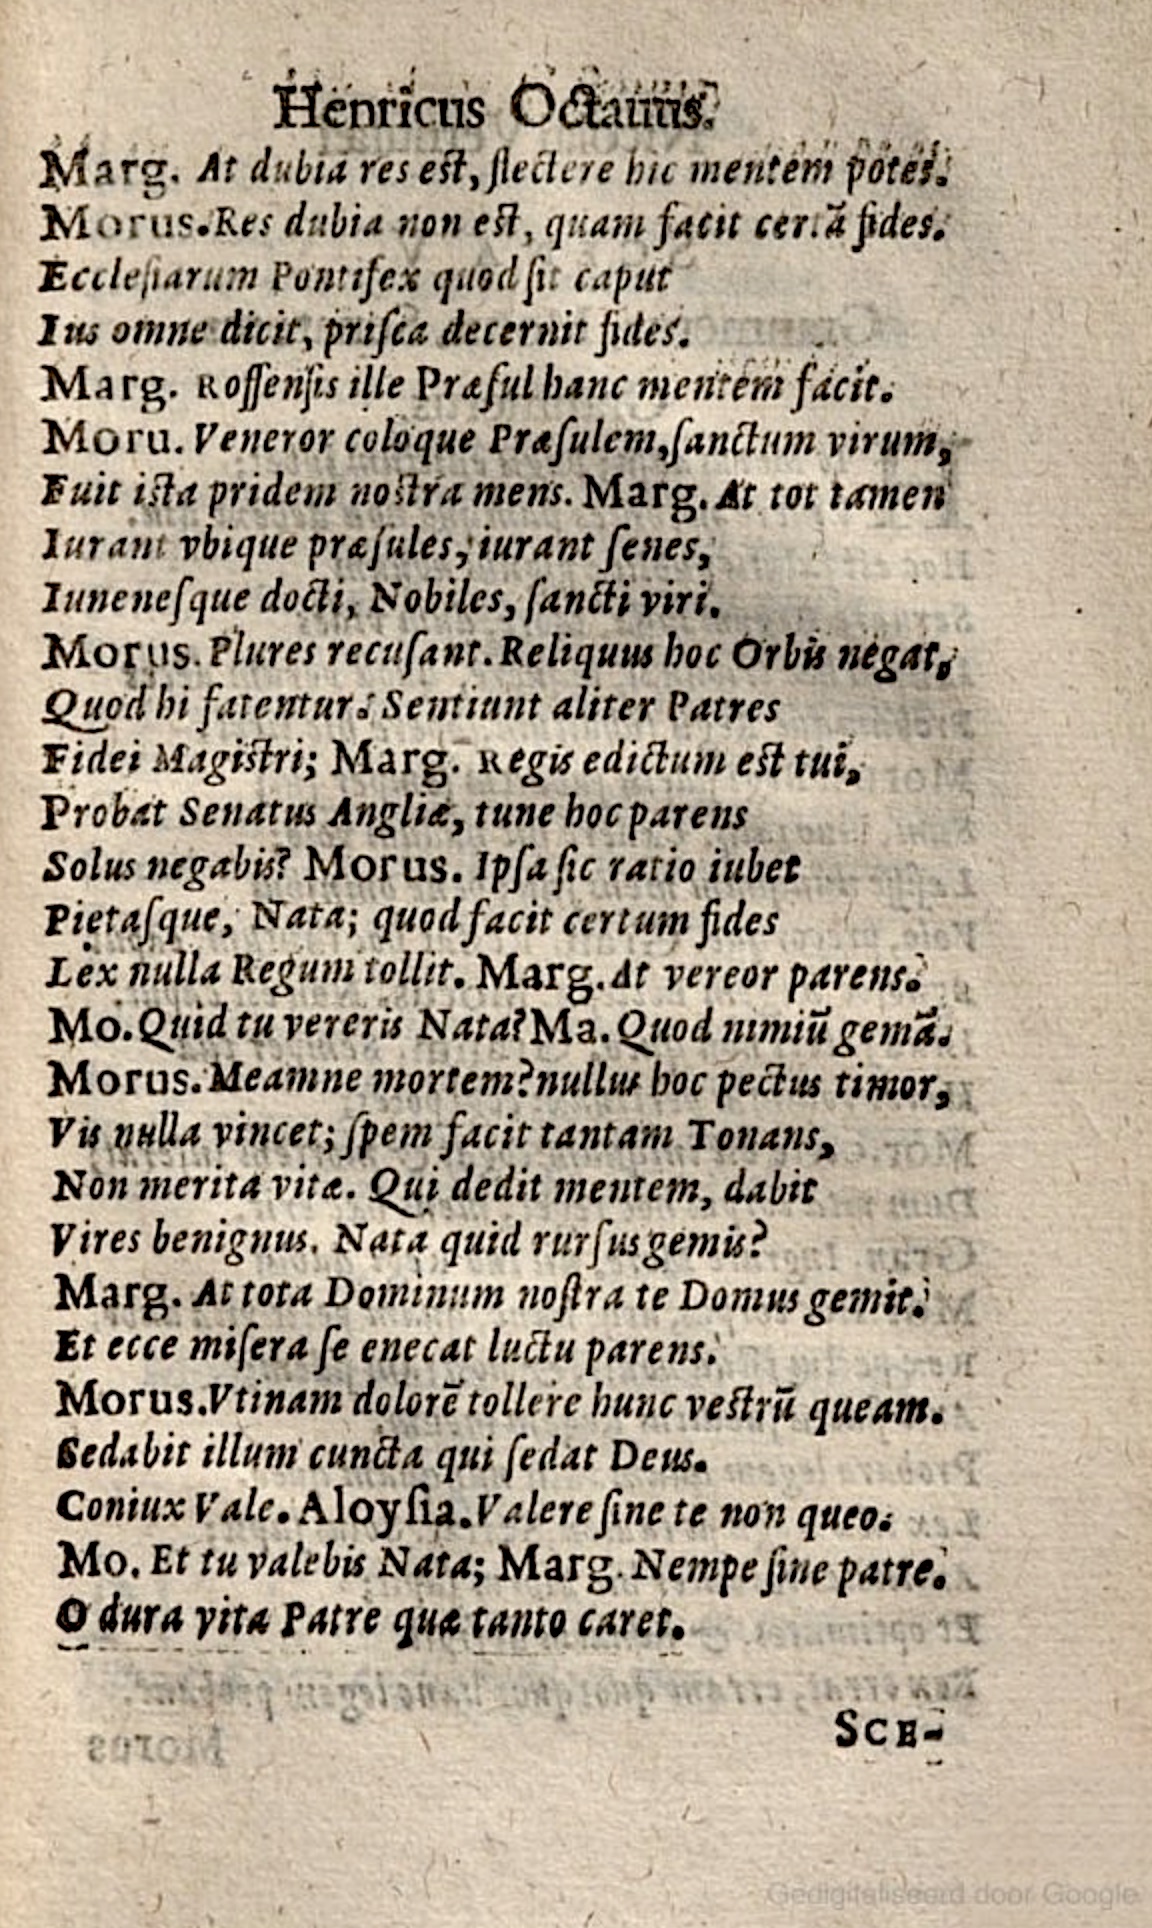 Henricus Octauus.
Marg. At dubia res est, flectere hic mentem potes.
Morus. Res dubia non est, quam facit certã fides.
Ecclesiarum Pontifex quod sit caput
Ius omne dicit, prisca decernit fides.
Marg. Roffensis ille Præsul hanc mentem facit.
Moru. Veneror coloque Præsulem, sanctum virum,
Fuit ista pridem nostra mens. Marg. At tot tamen
Iurant vbique præsules, iurant senes,
Iunenesque docti, Nobiles, sancti viri.
Morus. Plures recusant. Reliquus hoc Orbis negat,
Quod hi fatentur: Sentiunt aliter Patres
Fidei Magistri; Marg. Regis edictum est tui,
Probat Senatus Angliæ, tune hoc parens
Solus negabis? Morus. Ipsa sic ratio iubet
Pietasque, Nata; quod facit certum fides
Lex nulla Regum tollit. Marg. At vereor parens.
Mo. Quid tu vereris Nata? Ma. Quod nimiũ gemã.
Morus. Meamne mortem? nullus hoc pectus timor,
Vis nulla vincet; spem facit tantam Tonans,
Non merita vitæ. Qui dedit mentem, dabit
Vires benignus. Nata quid rursus gemis?
Marg. At tota Dominum nostra te Domus gemit.
Et ecce misera se enecat luctu parens.
Morus. Vtinam dolorẽ tollere hunc vestrũ queam.
Sedabit illum cuncta qui sedat Deus.
Coniux Vale. Aloysia. Valere sine te non queo.
Mo. Et tu valebis Nata; Marg. Nempe sine patre.
O dura vita Patre quæ tanto caret.
SCE-
Gedigitaliseerd door Google